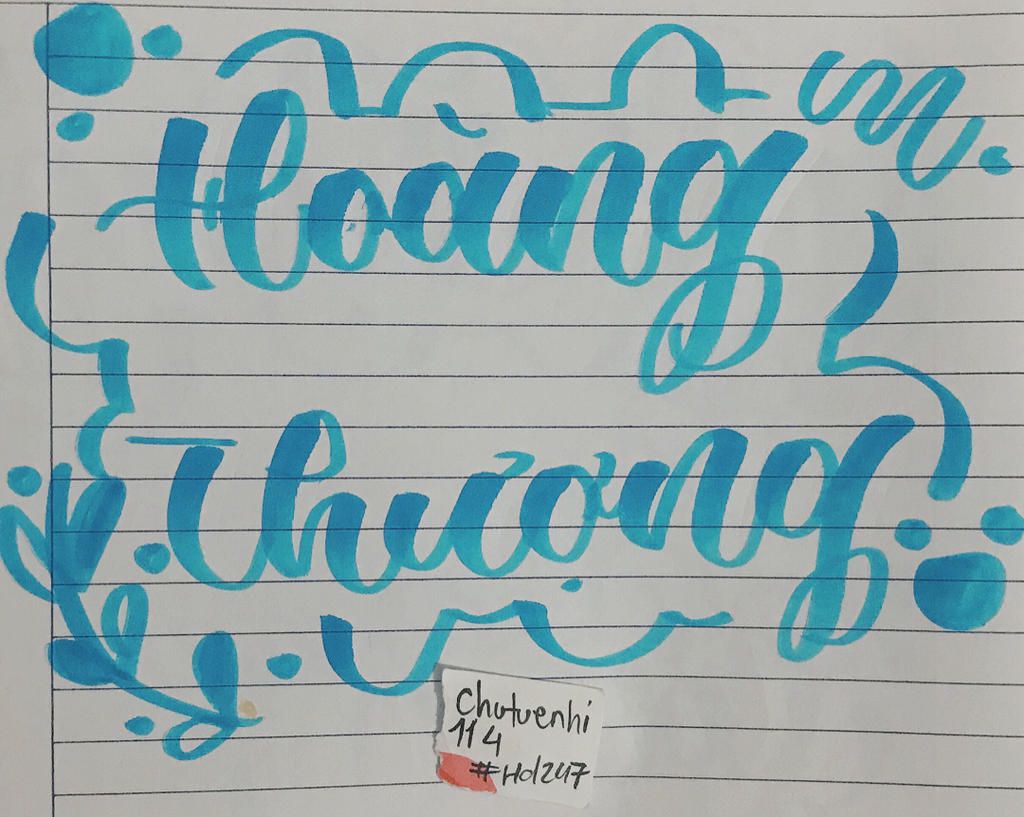 Hoàng
Thượng
Chutuenhi
114
#Hd247